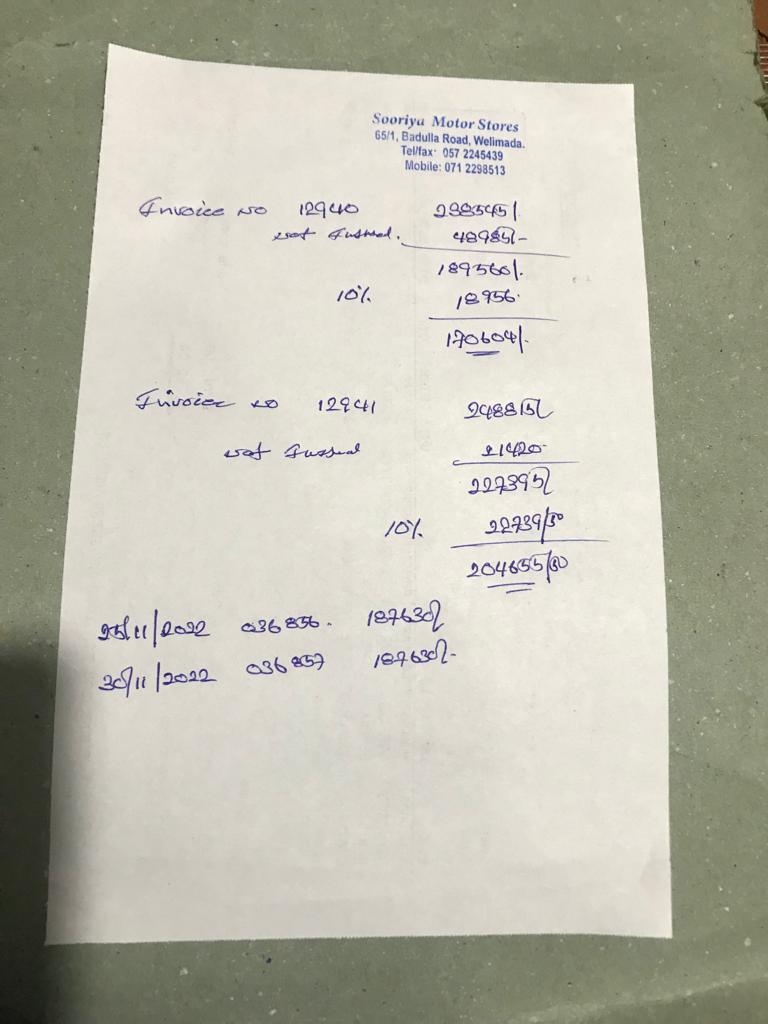 Sooriya Motor Stores
65/1, Badulla Road, Welimada.
Tel/fax: 057 2245439
Mobile: 071 2298513
Invoice No 12940 238545/.
not Issued. 48985/-
189560/.
10%. 18956.
170604/.
Invoice No 12941 248815/
not Issued 21420-
227395/
10%. 22739/50
204655/50
25/11/2022 036856. 187630/
30/11/2022 036857 187630/-